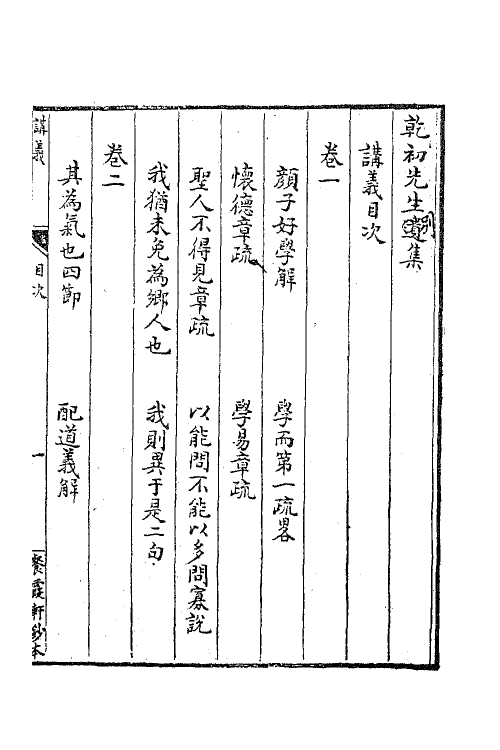 乾初先生遺集
別
講義目次
卷一
顏子好學解
學而第一疏畧
懷德章疏
學易章疏
聖人不得見章疏
以能問不能以多問寡說
我猶未免為鄉人也
我則異于是二句
卷二
其為氣也四節
配道義解
講義
目次
一
餐霞軒鈔本